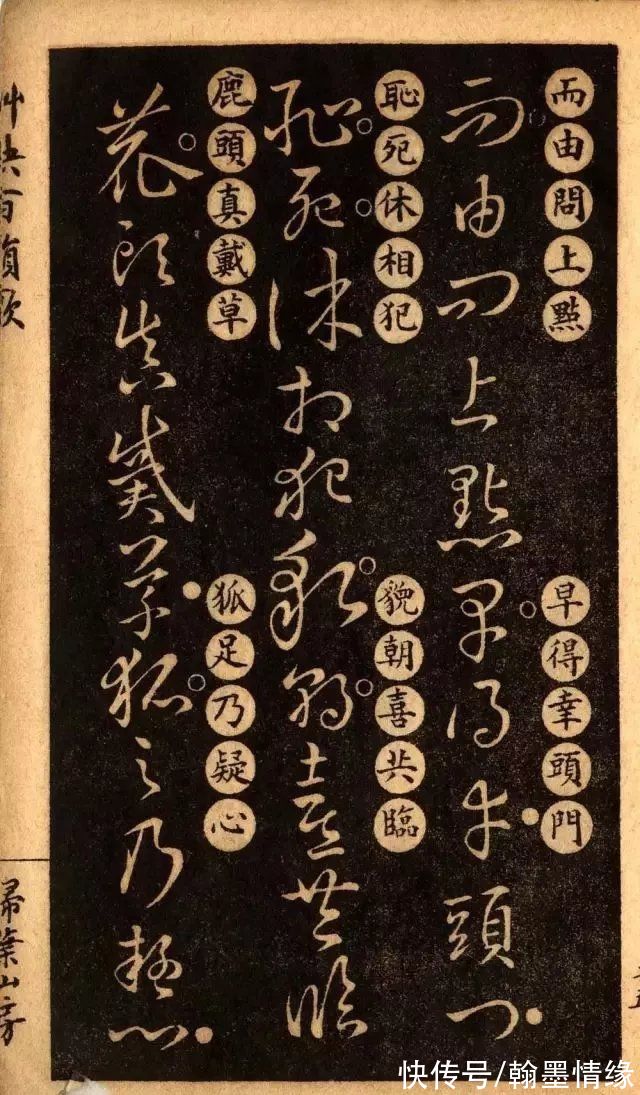 而由問上點
早得幸頭門
而由問上點早得幸頭門
恥死休相犯
貌朝喜共臨
恥死休相犯貌朝喜共臨
鹿頭真戴草
狐足乃疑心
鹿頭真戴草狐足乃疑心
艸訣百韻歌
掃葉山房
快传号/翰墨情缘